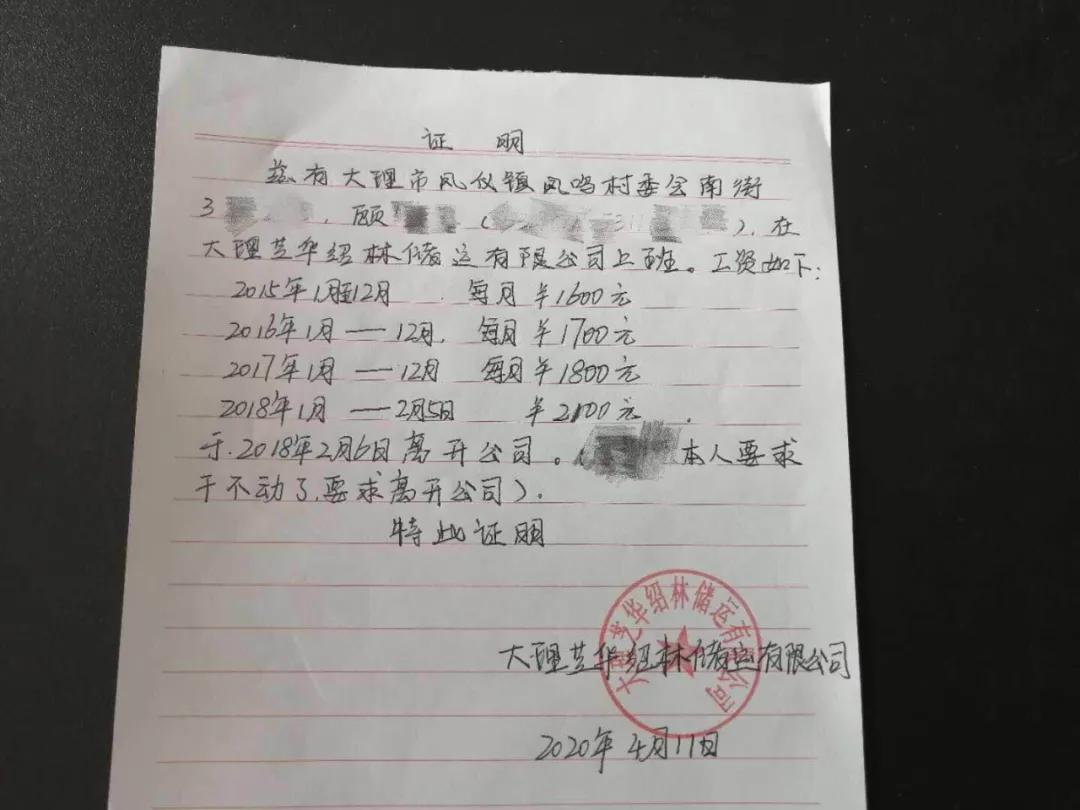 证 明
兹有大理市凤仪镇凤鸣村委会南街
3 , 顾 ( 311 ), 在
大理芝华绍林储运有限公司上班。工资如下:
2015年1月至12月 每月¥1600元
2016年1月—12月. 每月¥1700元
2017年1月—12月 每月¥1800元
2018年1月—2月5日 ¥2100元.
于.2018年2月6日离开公司。( 本人要求
干不动了.要求离开公司).
特此证明
大理芝华绍林储运有限公司
大理芝华绍林储运有限公司
2020年4月11日